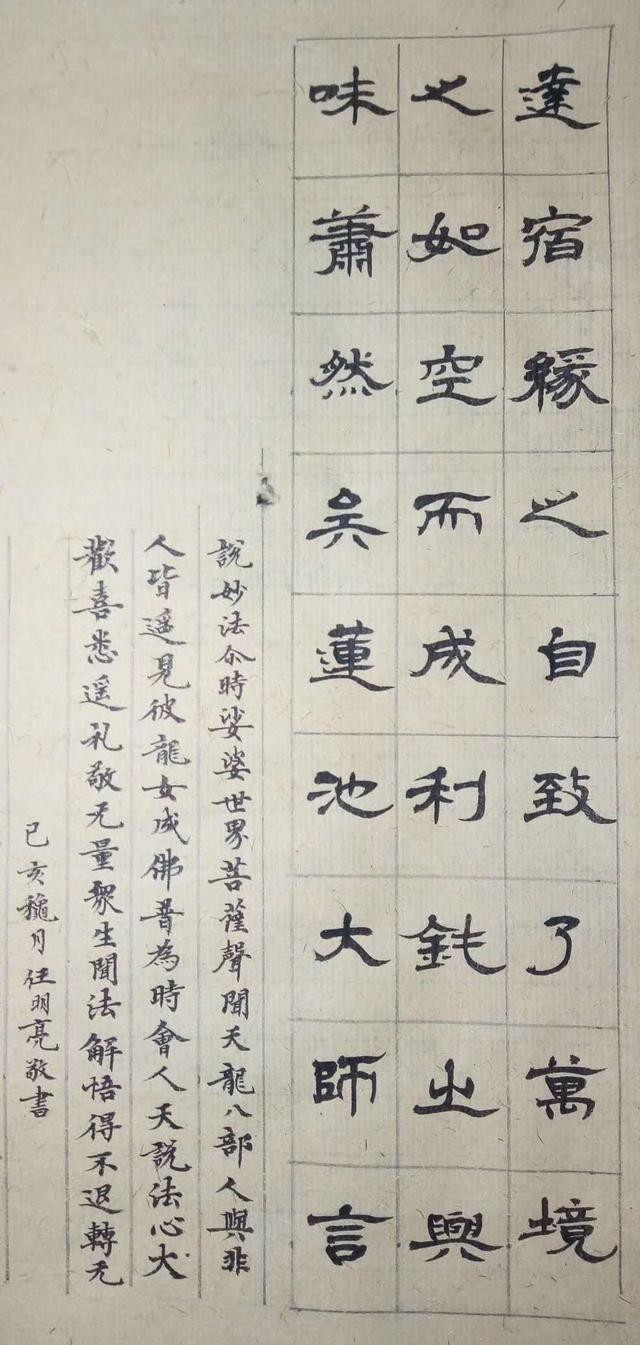 達宿緣之自致了萬境
之如空而成利鈍之興
味蕭然矣蓮池大師言
說妙法尒時娑婆世界菩薩聲聞天龍八部人與非
人皆遥見彼龍女成佛普為時會人天說法心大
歡喜悉遥礼敬无量衆生聞法解悟得不退轉无
己亥穐月任明亮敬書